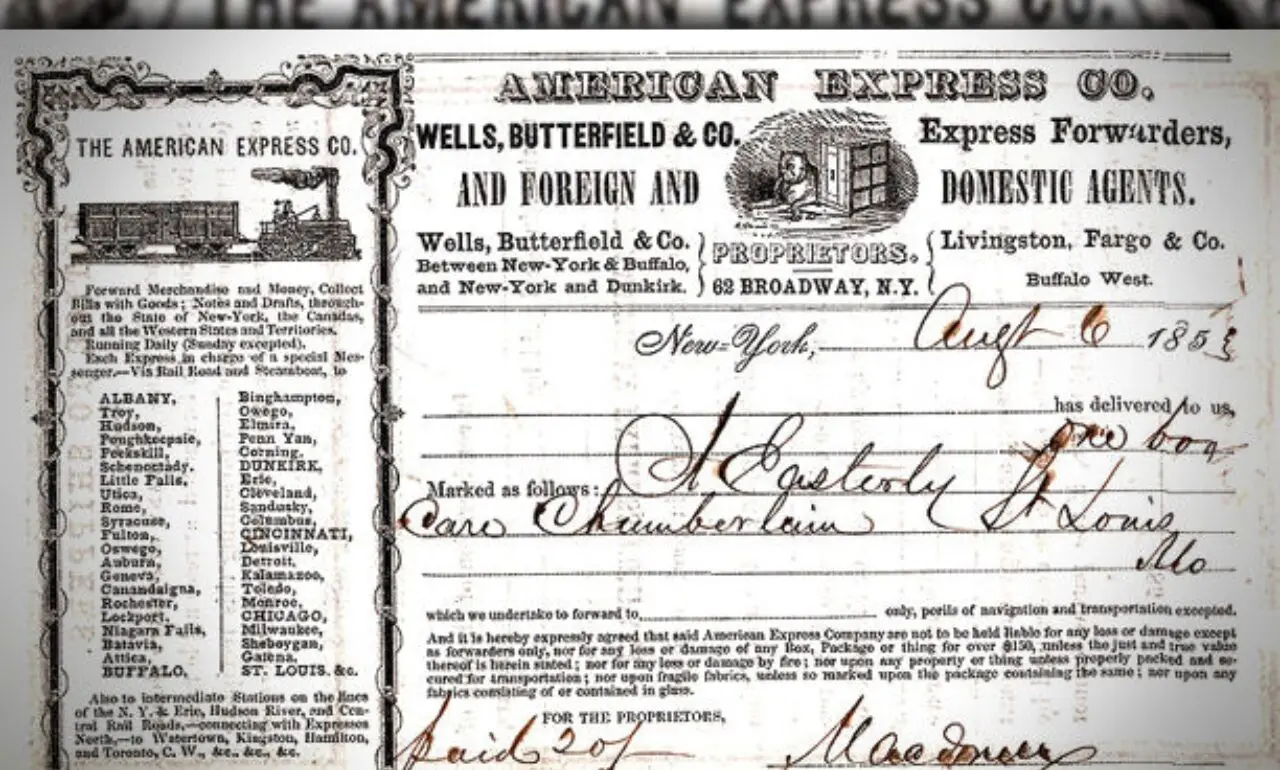 THE AMERICAN EXPRESS CO.
THE AMERICAN EXPRESS CO.
Forward Merchandise and Money, Collect
Bills with Goods; Notes and Drafts, through-
out the State of New-York, the Canadas,
and all the Western States and Territories.
Running Daily (Sunday excepted).
Each Express in charge of a special Mes-
senger,—Via Rail Road and Steamboat, to
ALBANY,
Troy,
Hudson,
Poughkeepsie,
Peekskill,
Schenectady.
Little Falls,
Utica,
Rome,
Syracuse,
Fulton,
Oswego,
Auburn,
Geneva,
Canandaigna,
Rochester,
Lockport.
Niagara Falls,
Batavia,
Attica,
BUFFALO.
Binghampton,
Owego,
Elmira,
Penn Yan,
Corning.
DUNKIRK,
Erie,
Cleveland,
Sandusky,
Columbus,
CINCINNATI,
Louisville,
Detroit.
Kalamazoo,
Toledo,
Monroe.
CHICAGO,
Milwaukee,
Sheboygan,
Galena.
ST. LOUIS. &c.
Also to intermediate Stations on the lines
of the N. Y. & Erie, Hudson River, and Cen-
tral Rail Roads,—connecting with Expresses
North,—to Watertown, Kingston, Hamilton,
and Toronto, C. W., &c., &c., &c.
AMERICAN EXPRESS CO.
WELLS, BUTTERFIELD & CO. Express Forwarders,
AND FOREIGN AND DOMESTIC AGENTS.
Wells, Butterfield & Co.
Between New-York & Buffalo,
and New-York and Dunkirk.
PROPRIETORS.
62 BROADWAY, N.Y.
Livingston, Fargo & Co.
Buffalo West.
New-York, Augt 6 1853
has delivered to us,
one box
Marked as follows: A Easterly
Care Chamberlain St Louis
Mo
which we undertake to forward to only, perils of navigation and transportation excepted.
And it is hereby expressly agreed that said American Express Company are not to be held liable for any loss or damage except
as forwarders only, nor for any loss or damage of any Box, Package or thing for over $150, unless the just and true value
thereof is herein stated; nor for any loss or damage by fire; nor upon any property or thing unless properly packed and se-
cured for transportation; nor upon fragile fabrics, unless so marked upon the package containing the same; nor upon any
fabrics consisting of or contained in glass.
FOR THE PROPRIETORS,
paid 20/